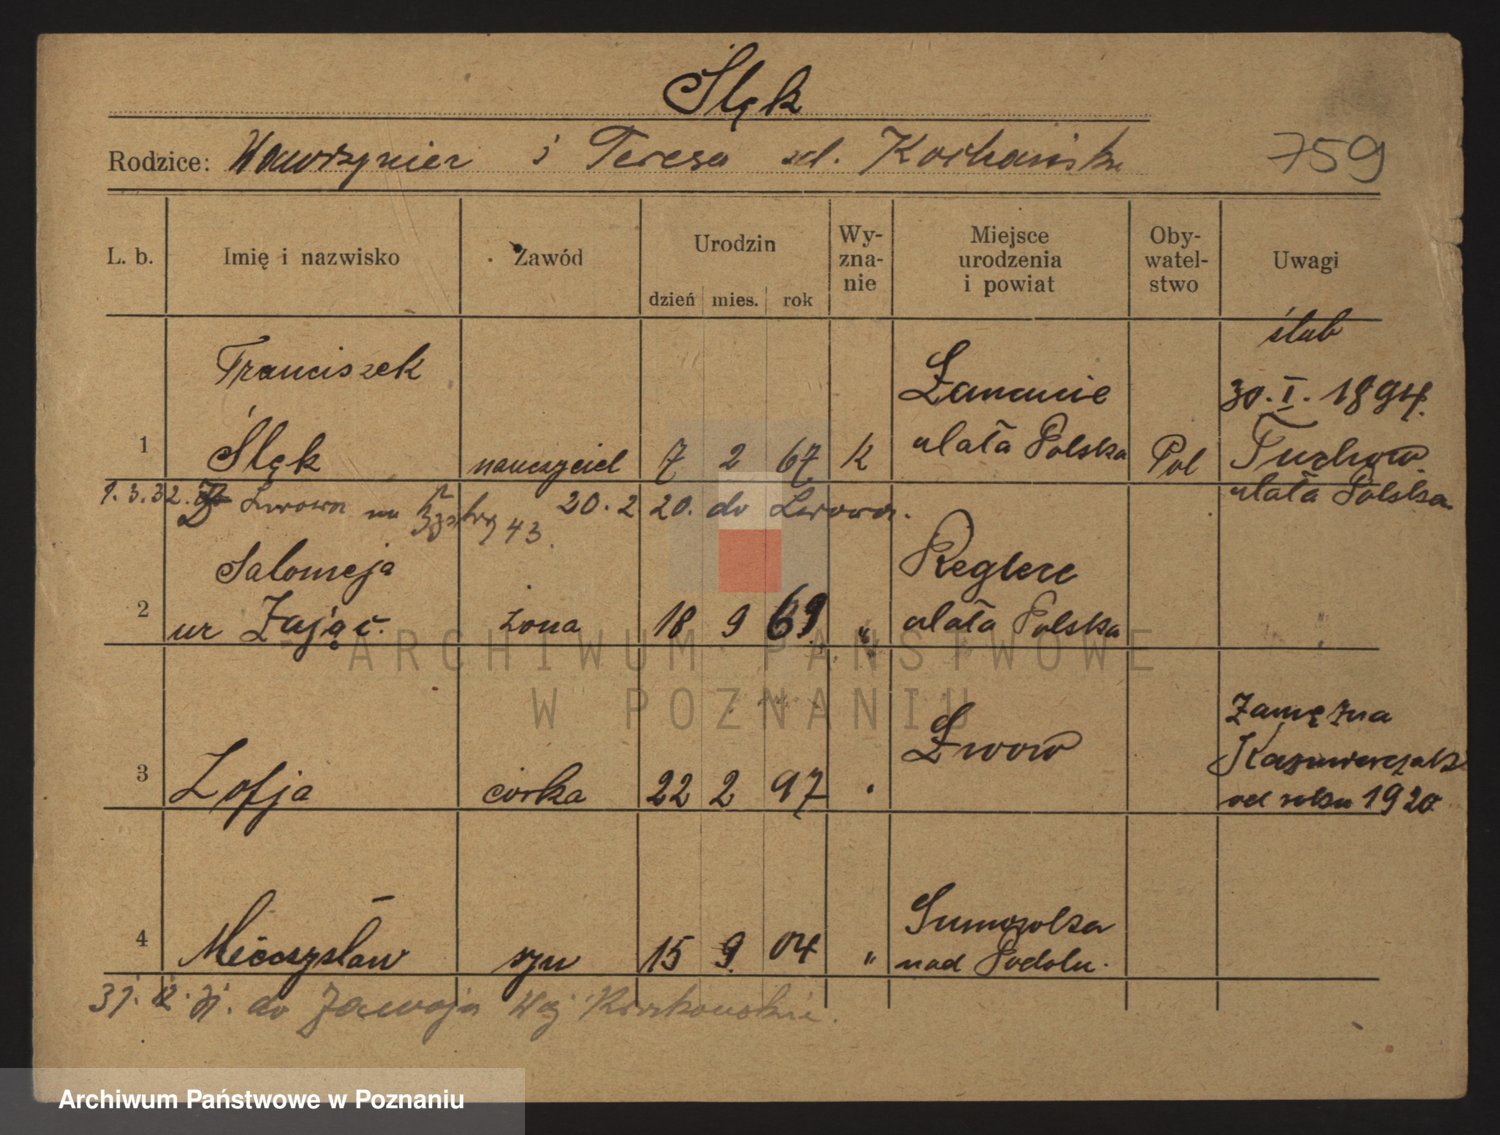 Ślęk
Rodzice: Wawrzyniec i Teresa zd. Kochańska
759
L. b. Imię i nazwisko Zawód Urodzin dzień mies. rok Wy-zna-nie Miejsce urodzenia i powiat Oby-watel-stwo Uwagi
ślub
Franciszek
30. I. 1894.
1 Ślęk nauczyciel 7 2 67 k Mała Polska Pol Tuchów
Mała Polska
1.3.32. Z Lwowa na 43. 20.2 20. do Lwowa.
Salomeja
2 ur Zając. żona 18 9 69 " Mała Polska
Zamężna
Lwów
Kaźmierczak
3 Zofja córka 22 2 97 "
od roku 1920
4 Mieczysław syn 15 9. 04 " nad Podolu.
do Zawoja Woj Krakowskie.
ARCHIWUM PAŃSTWOWE
W POZNANIU
Archiwum Państwowe w Poznaniu